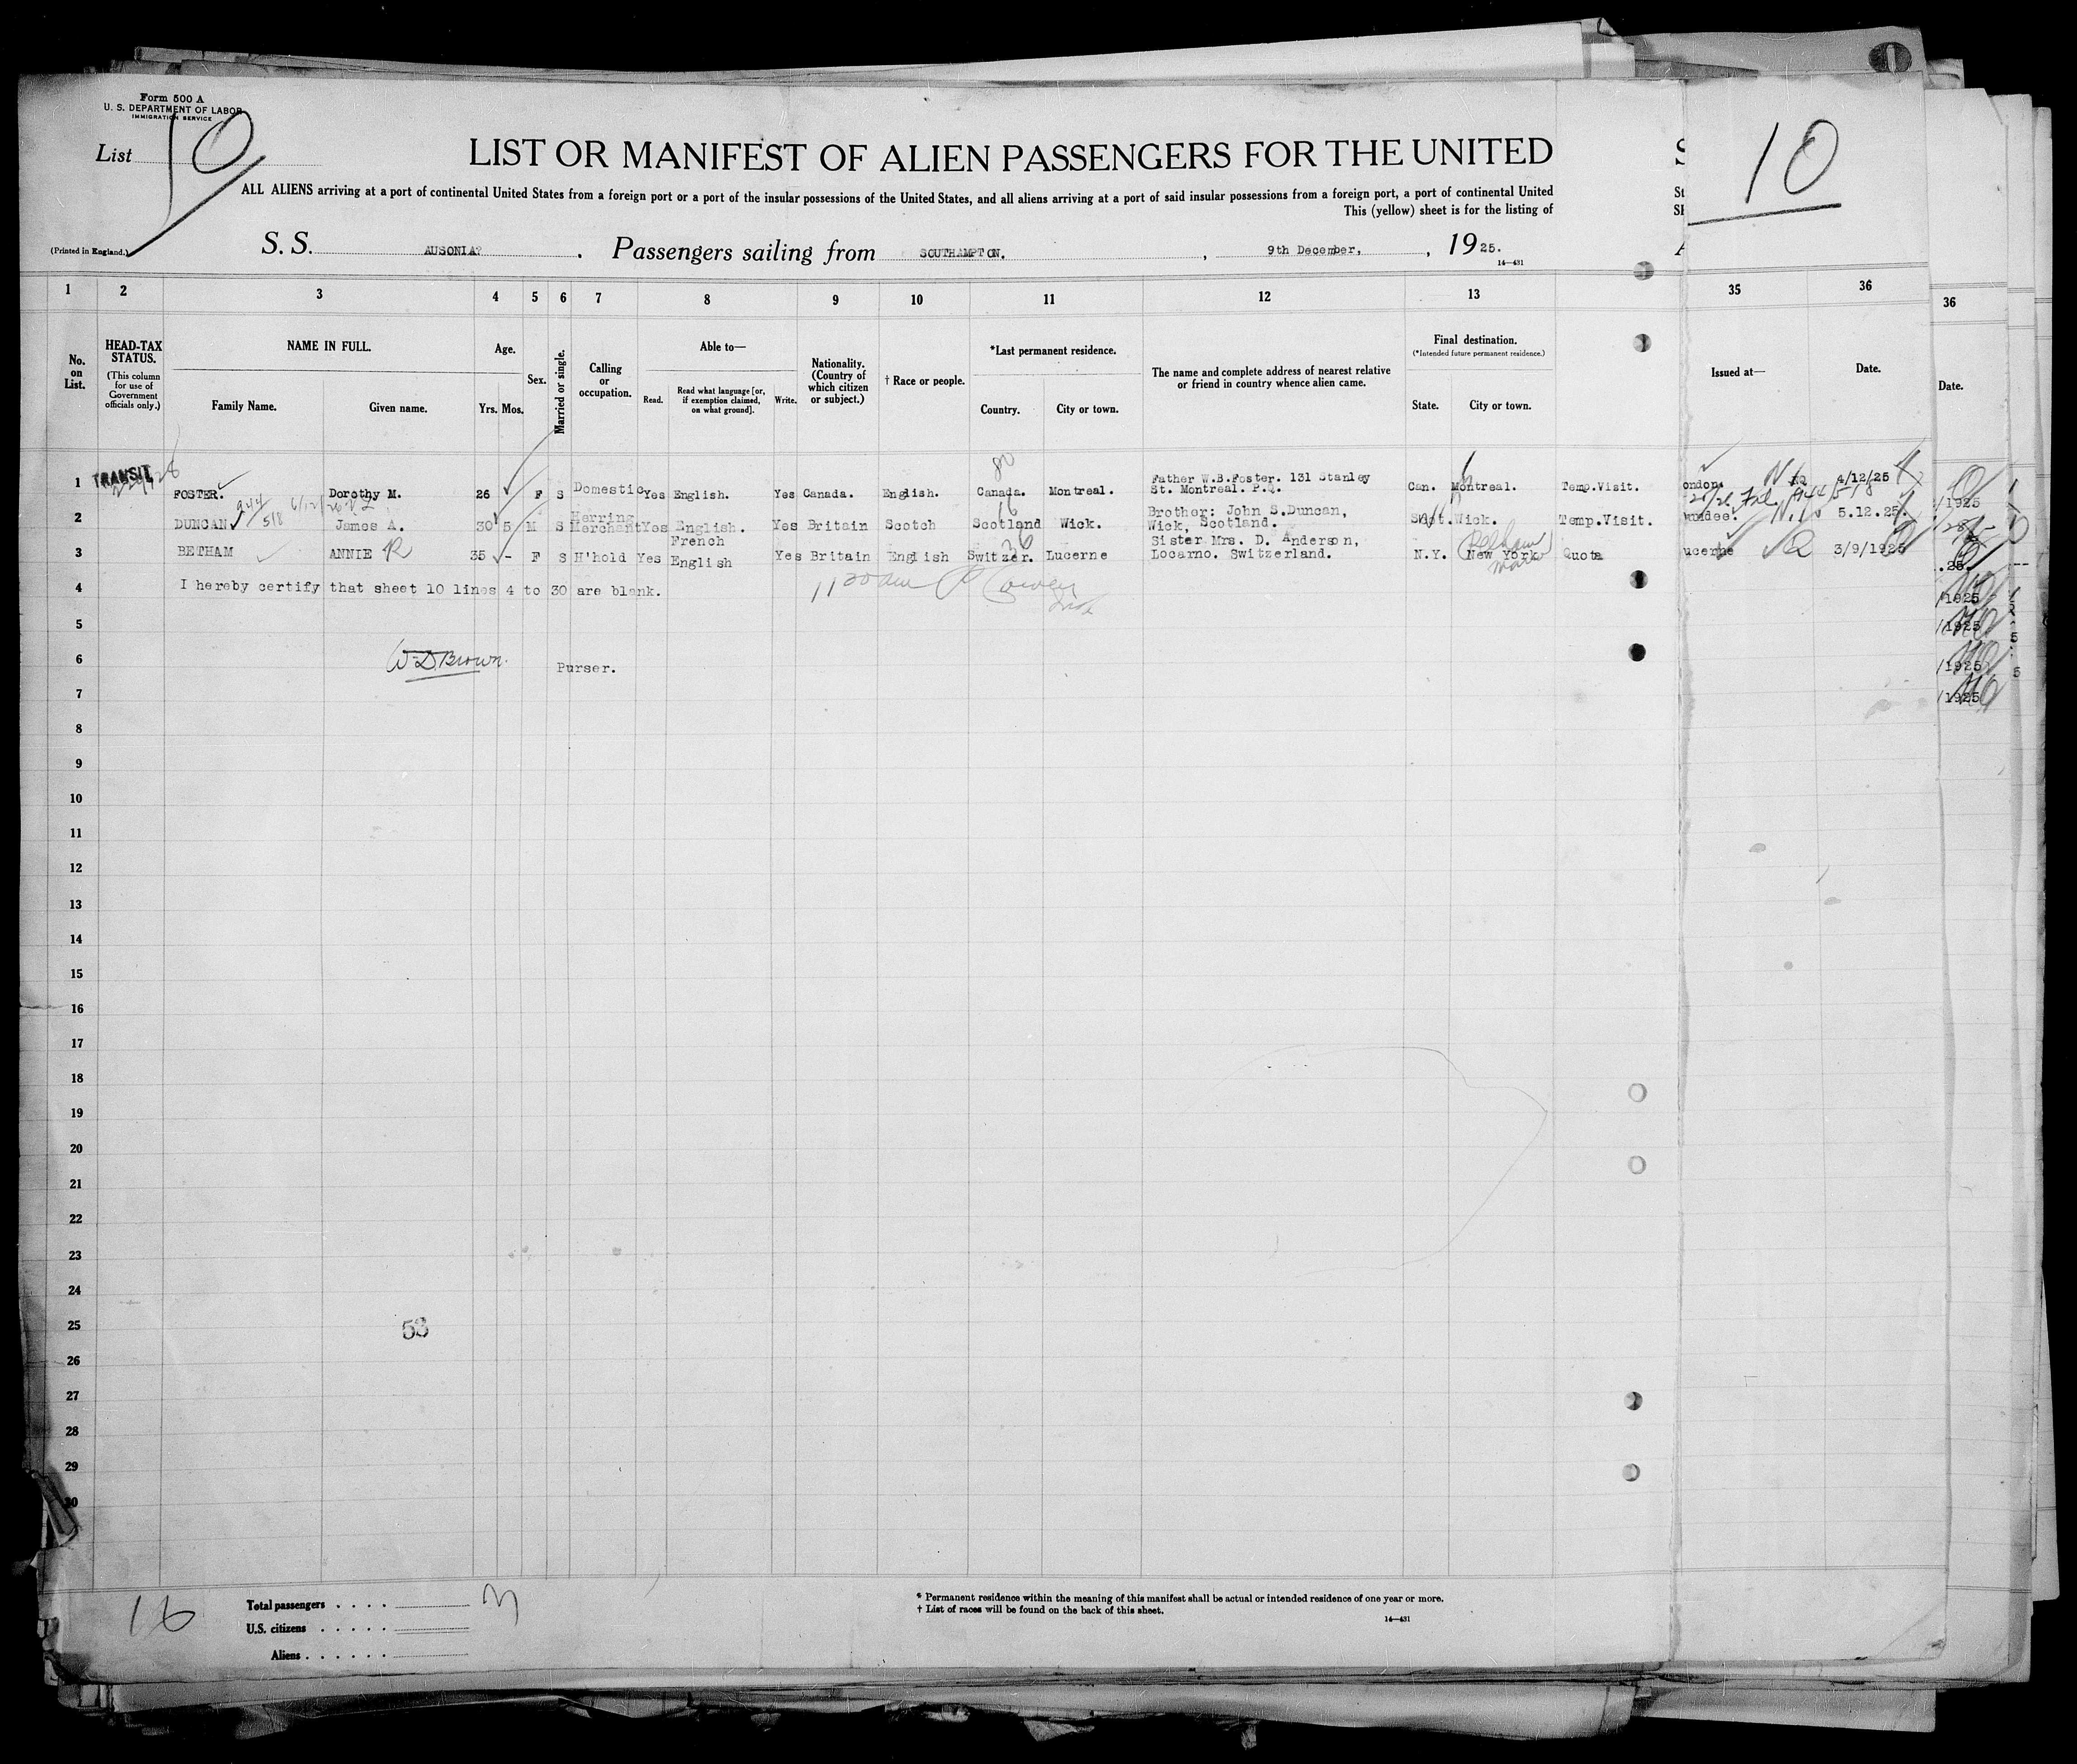 Form 500 A
U. S. DEPARTMENT OF LABOR
IMMIGRATION SERVICE
List 10
10
LIST OR MANIFEST OF ALIEN PASSENGERS FOR THE UNITED S
ALL ALIENS arriving at a port of continental United States from a foreign port or a port of the insular possessions of the United States, and all aliens arriving at a port of said insular possessions from a foreign port, a port of continental United St
This (yellow) sheet is for the listing of
(Printed in England.)
S. S. AUSONIA. Passengers sailing from SOUTHAMPTON. , 9th December, , 1925.
14—431
1 2 3 4 5 6 7 8 9 10 11 12 13 35 36
36
No. on List.
HEAD-TAX STATUS. (This column for use of Government officials only.)
NAME IN FULL.
Family Name. Given name.
Age. Yrs. Mos.
Sex.
Married or single.
Calling or occupation.
Able to—
Read. Read what language [or, if exemption claimed, on what ground]. Write.
Nationality. (Country of which citizen or subject.)
† Race or people.
*Last permanent residence.
Country. City or town.
The name and complete address of nearest relative or friend in country whence alien came.
Final destination. (*Intended future permanent residence.)
State. City or town.
Issued at— Date.
Date.
1 TRANSIT FOSTER. Dorothy M. 26 F S Domestic Yes English. Yes Canada. English. Canada. Montreal. Father W.B.Foster. 131 Stanley St. Montreal. P.Q. Can. Montreal. Temp.Visit. ondon. 4/12/25
2 DUNCAN James A. 30 5 M S Herring Merchant Yes English. Yes Britain Scotch Scotland Wick. Brother: John S.Duncan, Wick, Scotland. Scot. Wick. Temp.Visit. undee. 5.12.25.
3 BETHAM ANNIE R 35 - F S H'hold Yes French English Yes Britain English Switzer. Lucerne Sister Mrs. D. Anderson, Locarno. Switzerland. N.Y. New York Quota ucerne 3/9/1925
4 I hereby certify that sheet 10 lines 4 to 30 are blank.
5
6 W D Brown. Purser.
7
8
9
10
11
12
13
14
15
16
17
18
19
20
21
22
23
24
25
53
26
27
28
29
30
16
Total passengers . . . . 3
U.S. citizens . . . . .
Aliens . . . . . .
* Permanent residence within the meaning of this manifest shall be actual or intended residence of one year or more.
† List of races will be found on the back of this sheet.
14—431